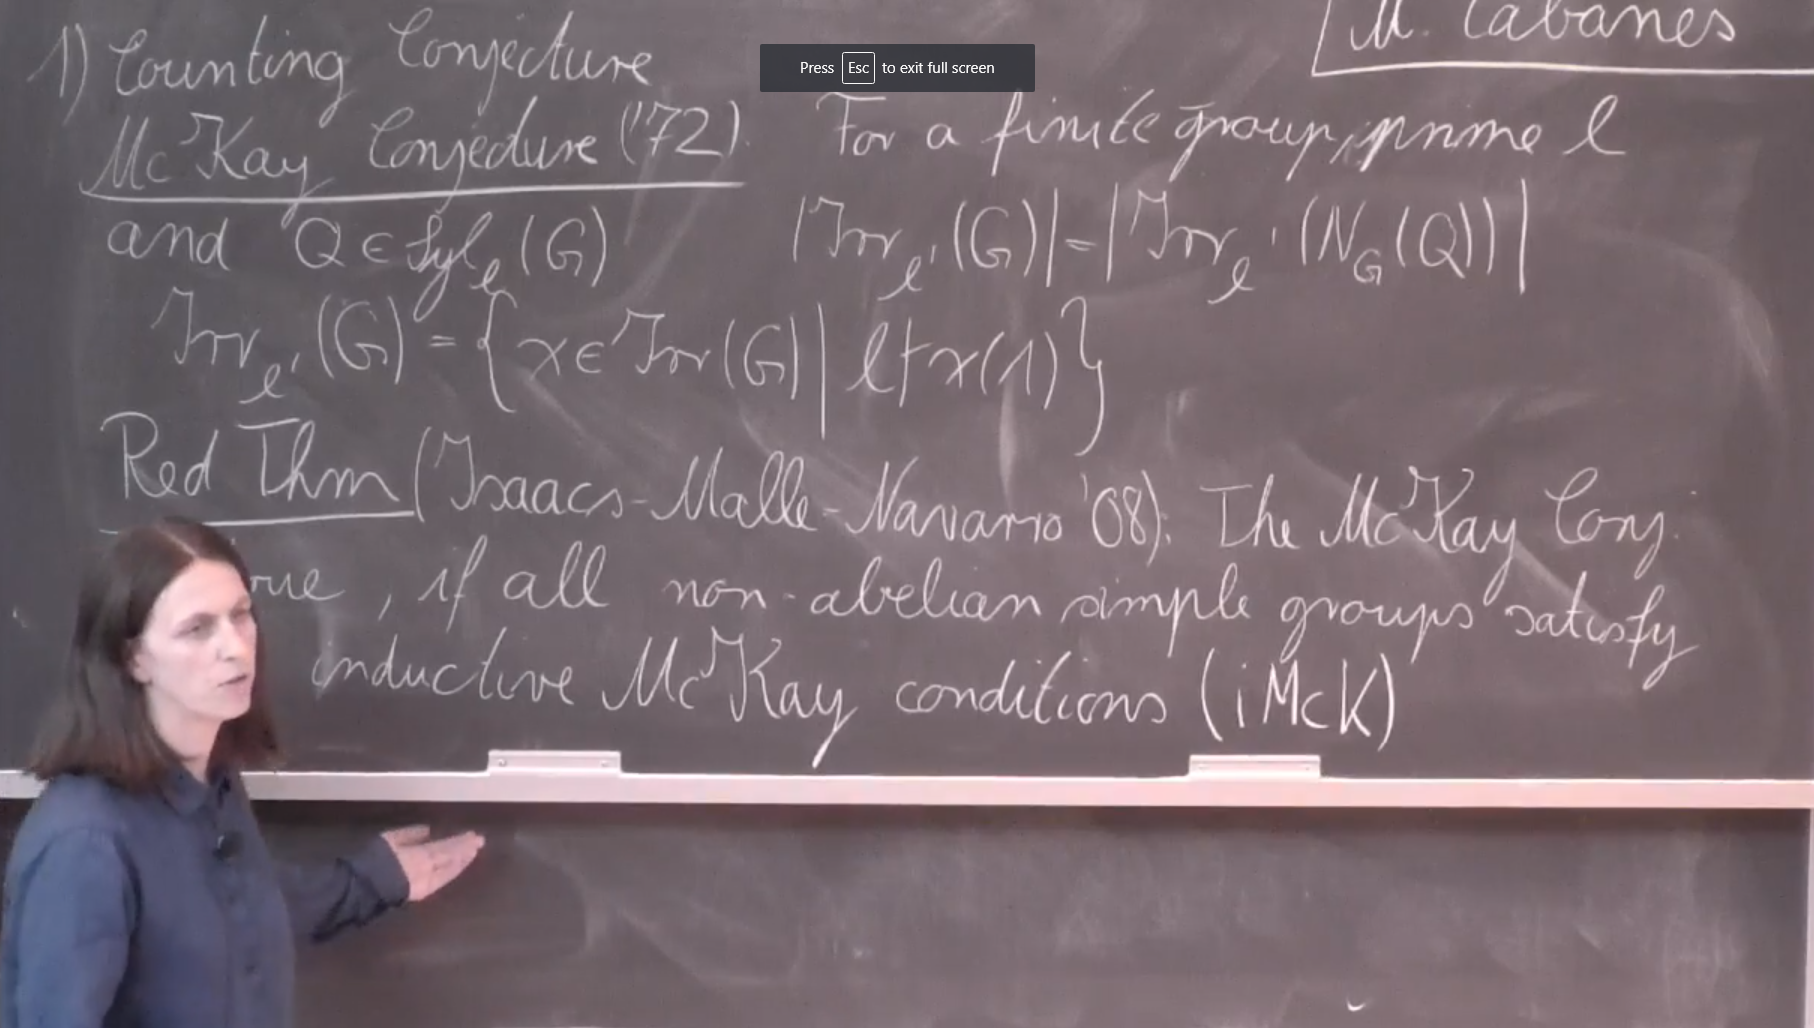 M. Cabanes
Press Esc to exit full screen
1) Counting Conjecture
McKay Conjecture ('72). For a finite group, prime l
and Q ∈ Syl_l (G) |Irr_l' (G)| = |Irr_l' (N_G(Q))|
Irr_l' (G) = { χ ∈ Irr(G) | l ∤ χ(1) }
Red Thm (Isaacs-Malle-Navarro '08). The McKay Conj.
, if all non-abelian simple groups satisfy
inductive McKay conditions (iMcK)